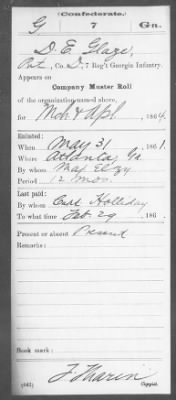 Confederate.
G 7 Ga.
D. E. Glaze,
Pvt, Co. D, 7 Reg't Georgia Infantry.
Appears on
Company Muster Roll
of the organization named above,
for Mch & Apl, 1864.
Enlisted:
When May 31, 1861.
Where Atlanta, Ga
By whom Maj Elzy
Period 12 mos.
Last paid:
By whom Capt Holliday
To what time Feb. 29, 186 .
Present or absent Present
Remarks:
Book mark:
(642) J. Marin
Copyist.